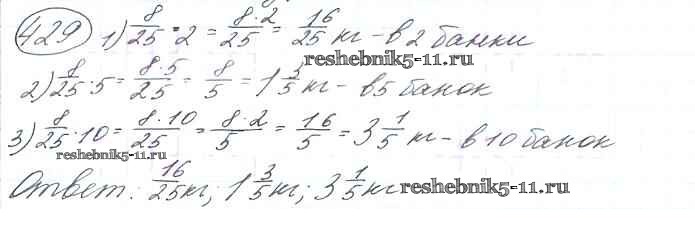 429 1) 8/25 · 2 = 8·2/25 = 16/25 кг - в 2 банки
reshebnik5-11.ru
2) 8/25 · 5 = 8·5/25 = 8/5 = 1 3/5 кг - в 5 банок
3) 8/25 · 10 = 8·10/25 = 8·2/5 = 16/5 = 3 1/5 кг - в 10 банок
reshebnik5-11.ru
Ответ: 16/25 кг; 1 3/5 кг; 3 1/5 кг
reshebnik5-11.ru